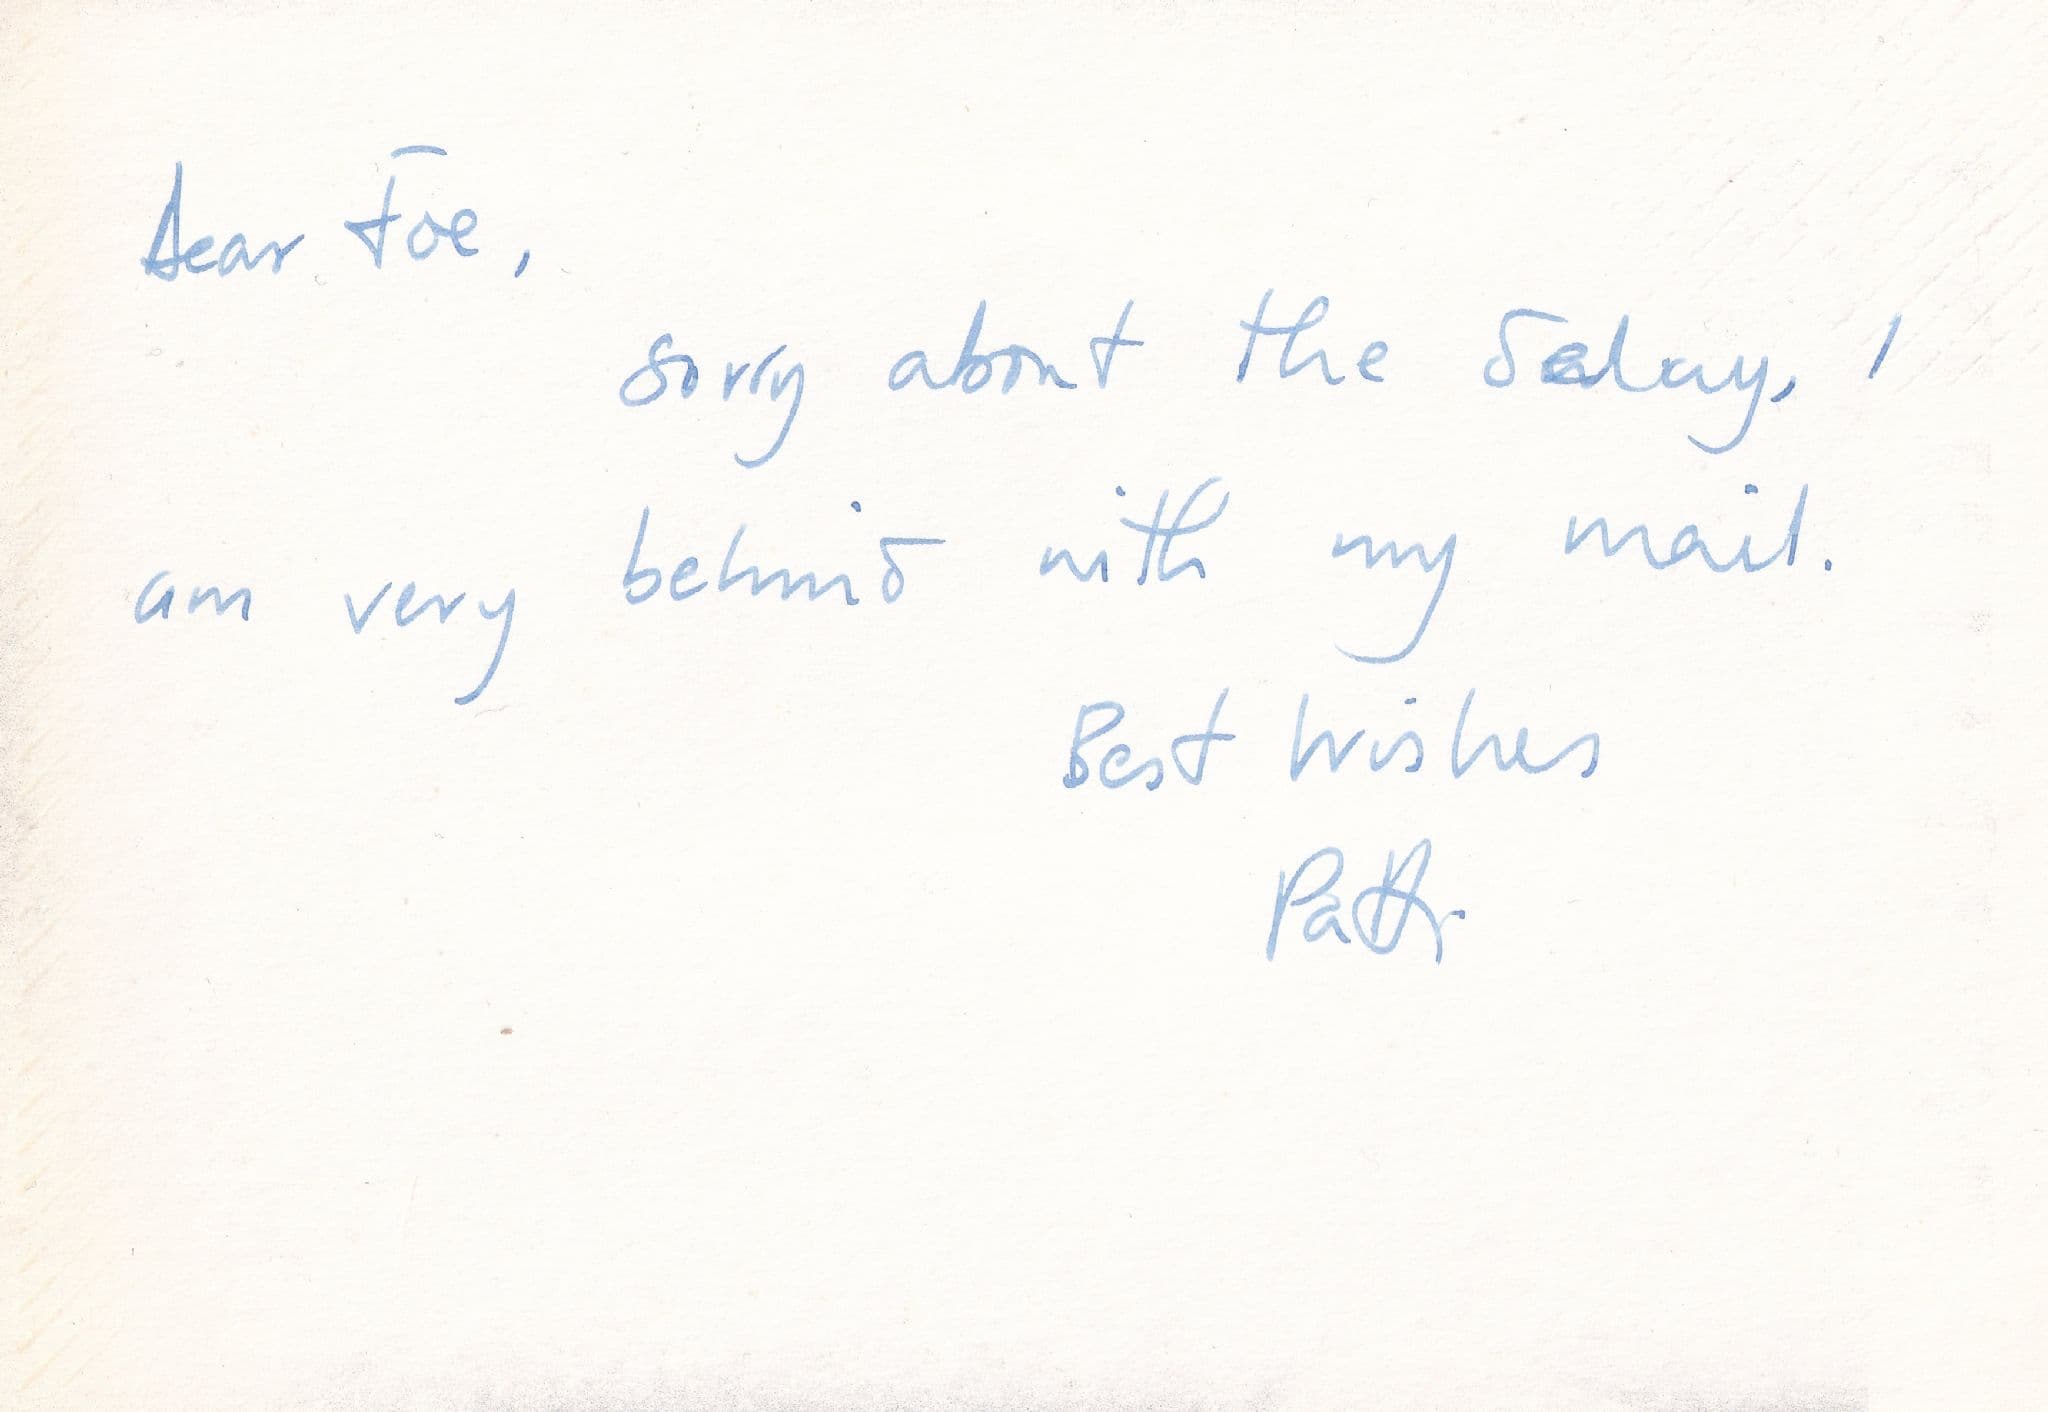 Dear Foe,
sorry about the delay, I
am very behind with my mail.
Best Wishes